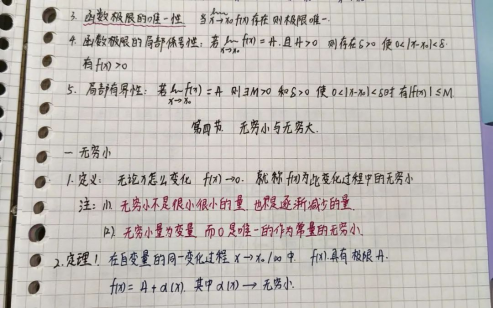 3. 函数极限的唯一性 当lim x→x₀ f(x)存在 则极限唯一.
4. 函数极限的局部保号性: 若 lim x→x₀ f(x) = A. 且 A>0 则存在 δ>0 使 0<|x-x₀|<δ.
有 f(x)>0
5. 局部有界性: 若 lim x→x₀ f(x) = A 则 ∃M>0 和 δ>0 使 0<|x-x₀|<δ时 有|f(x)| ≤ M
第四节 无穷小与无穷大.
一 无穷小
1. 定义: 无论x怎么变化 f(x)→0. 就称f(x)为此变化过程中的无穷小
注: (1) 无穷小不是很小很小的量 也是逐渐减少的量
(2) 无穷小量为变量 而0是唯一的作为常量的无穷小.
2. 定理1. 在自变量的同一变化过程 x→x₀/∞ 中. f(x)具有极限A.
f(x) = A + α(x). 其中 α(x) → 无穷小.